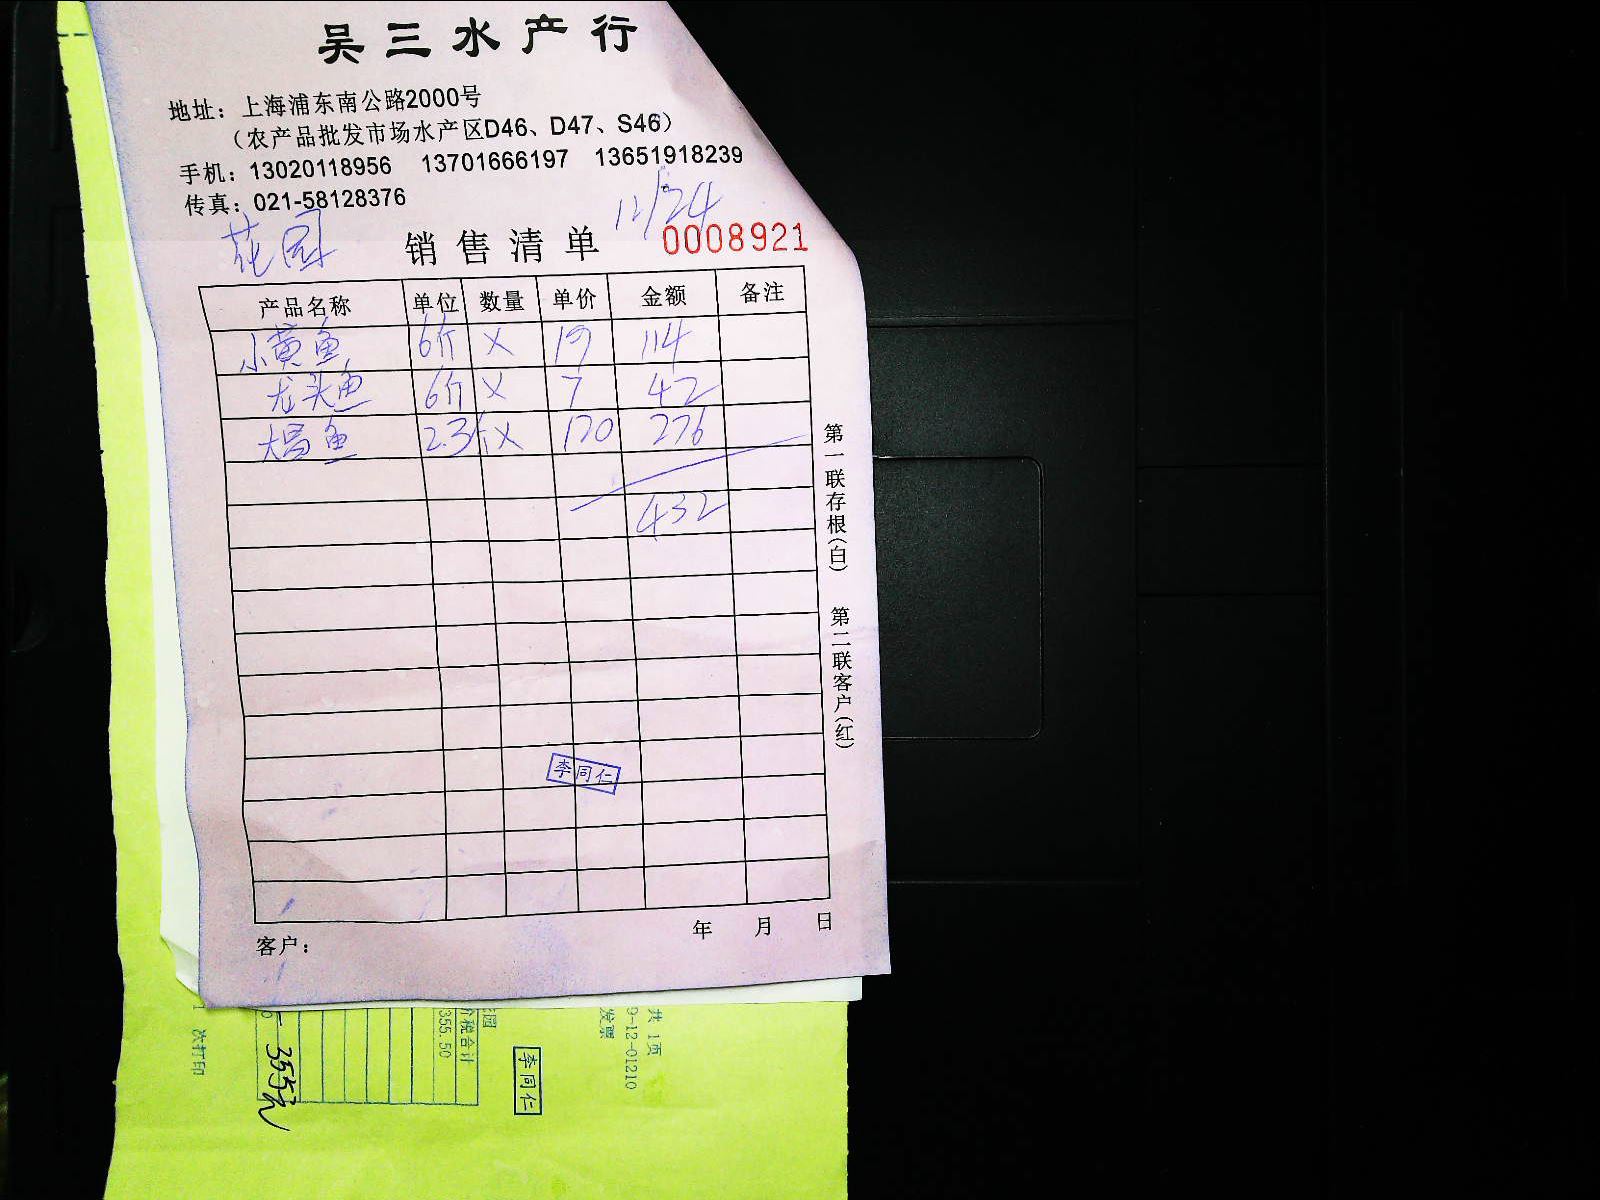 吴三水产行
地址：上海浦东南公路2000号
（农产品批发市场水产区D46、D47、S46）
手机：13020118956 13701666197 13651918239
传真：021-58128376
12/24
花园 销售清单 0008921
产品名称 单位 数量 单价 金额 备注
小黄鱼 6斤 X 19 114
龙头鱼 6斤 X 7 42
大昌鱼 2.3斤 X 120 276
432
第一联存根(白) 第二联客户(红)
李同仁
年 月 日
客户：
共 1页
9-12-01210
发票
花园
价税合计
355.50
李同仁
355元
次打印